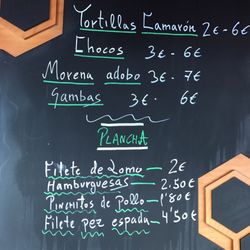 Tortillas Camarón 2€-6€
Chocos 3€-6€
Morena adobo 3€-7€
Gambas 3€-6€
PLANCHA
Filete de Lomo — 2€
Hamburguesas — 2.50€
Pinchitos de pollo — 1'80€
Filete pez espada — 4'50€